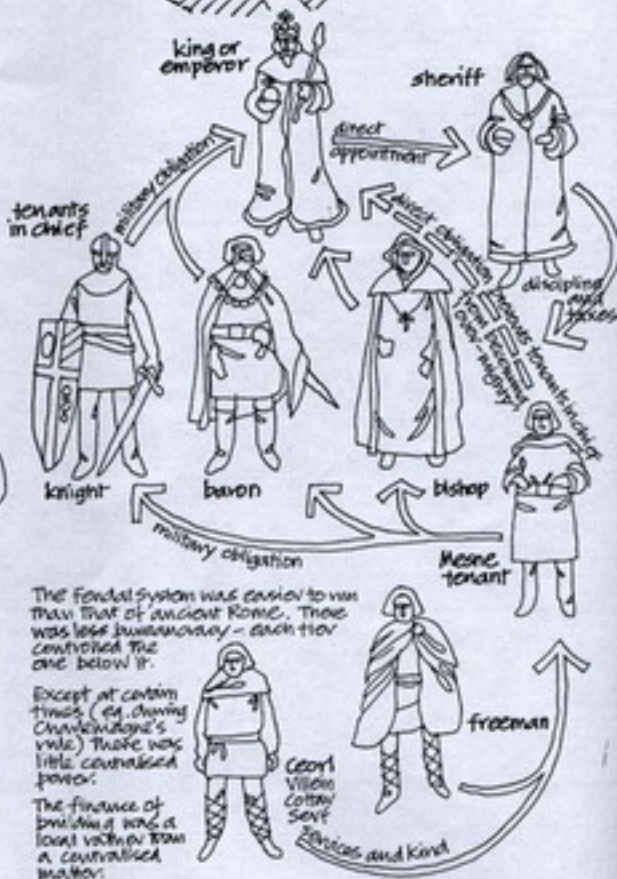 king or
emperor
sheriff
direct
appointment
military obligation
tenants
in chief
direct obligation prevents tenants in chief
from becoming
over-mighty
discipline
and
taxes
knight
baron
bishop
military obligation
Mesne
tenant
The feudal system was easier to run
than that of ancient Rome. There
was less bureaucracy – each tier
controlled the
one below it.
Except at certain
times (eg. during
Charlemagne's
rule) there was
little centralised
power.
The finance of
building was a
local rather than
a centralised
matter.
freeman
Ceorl
Villein
Cottar
Serf
services and kind